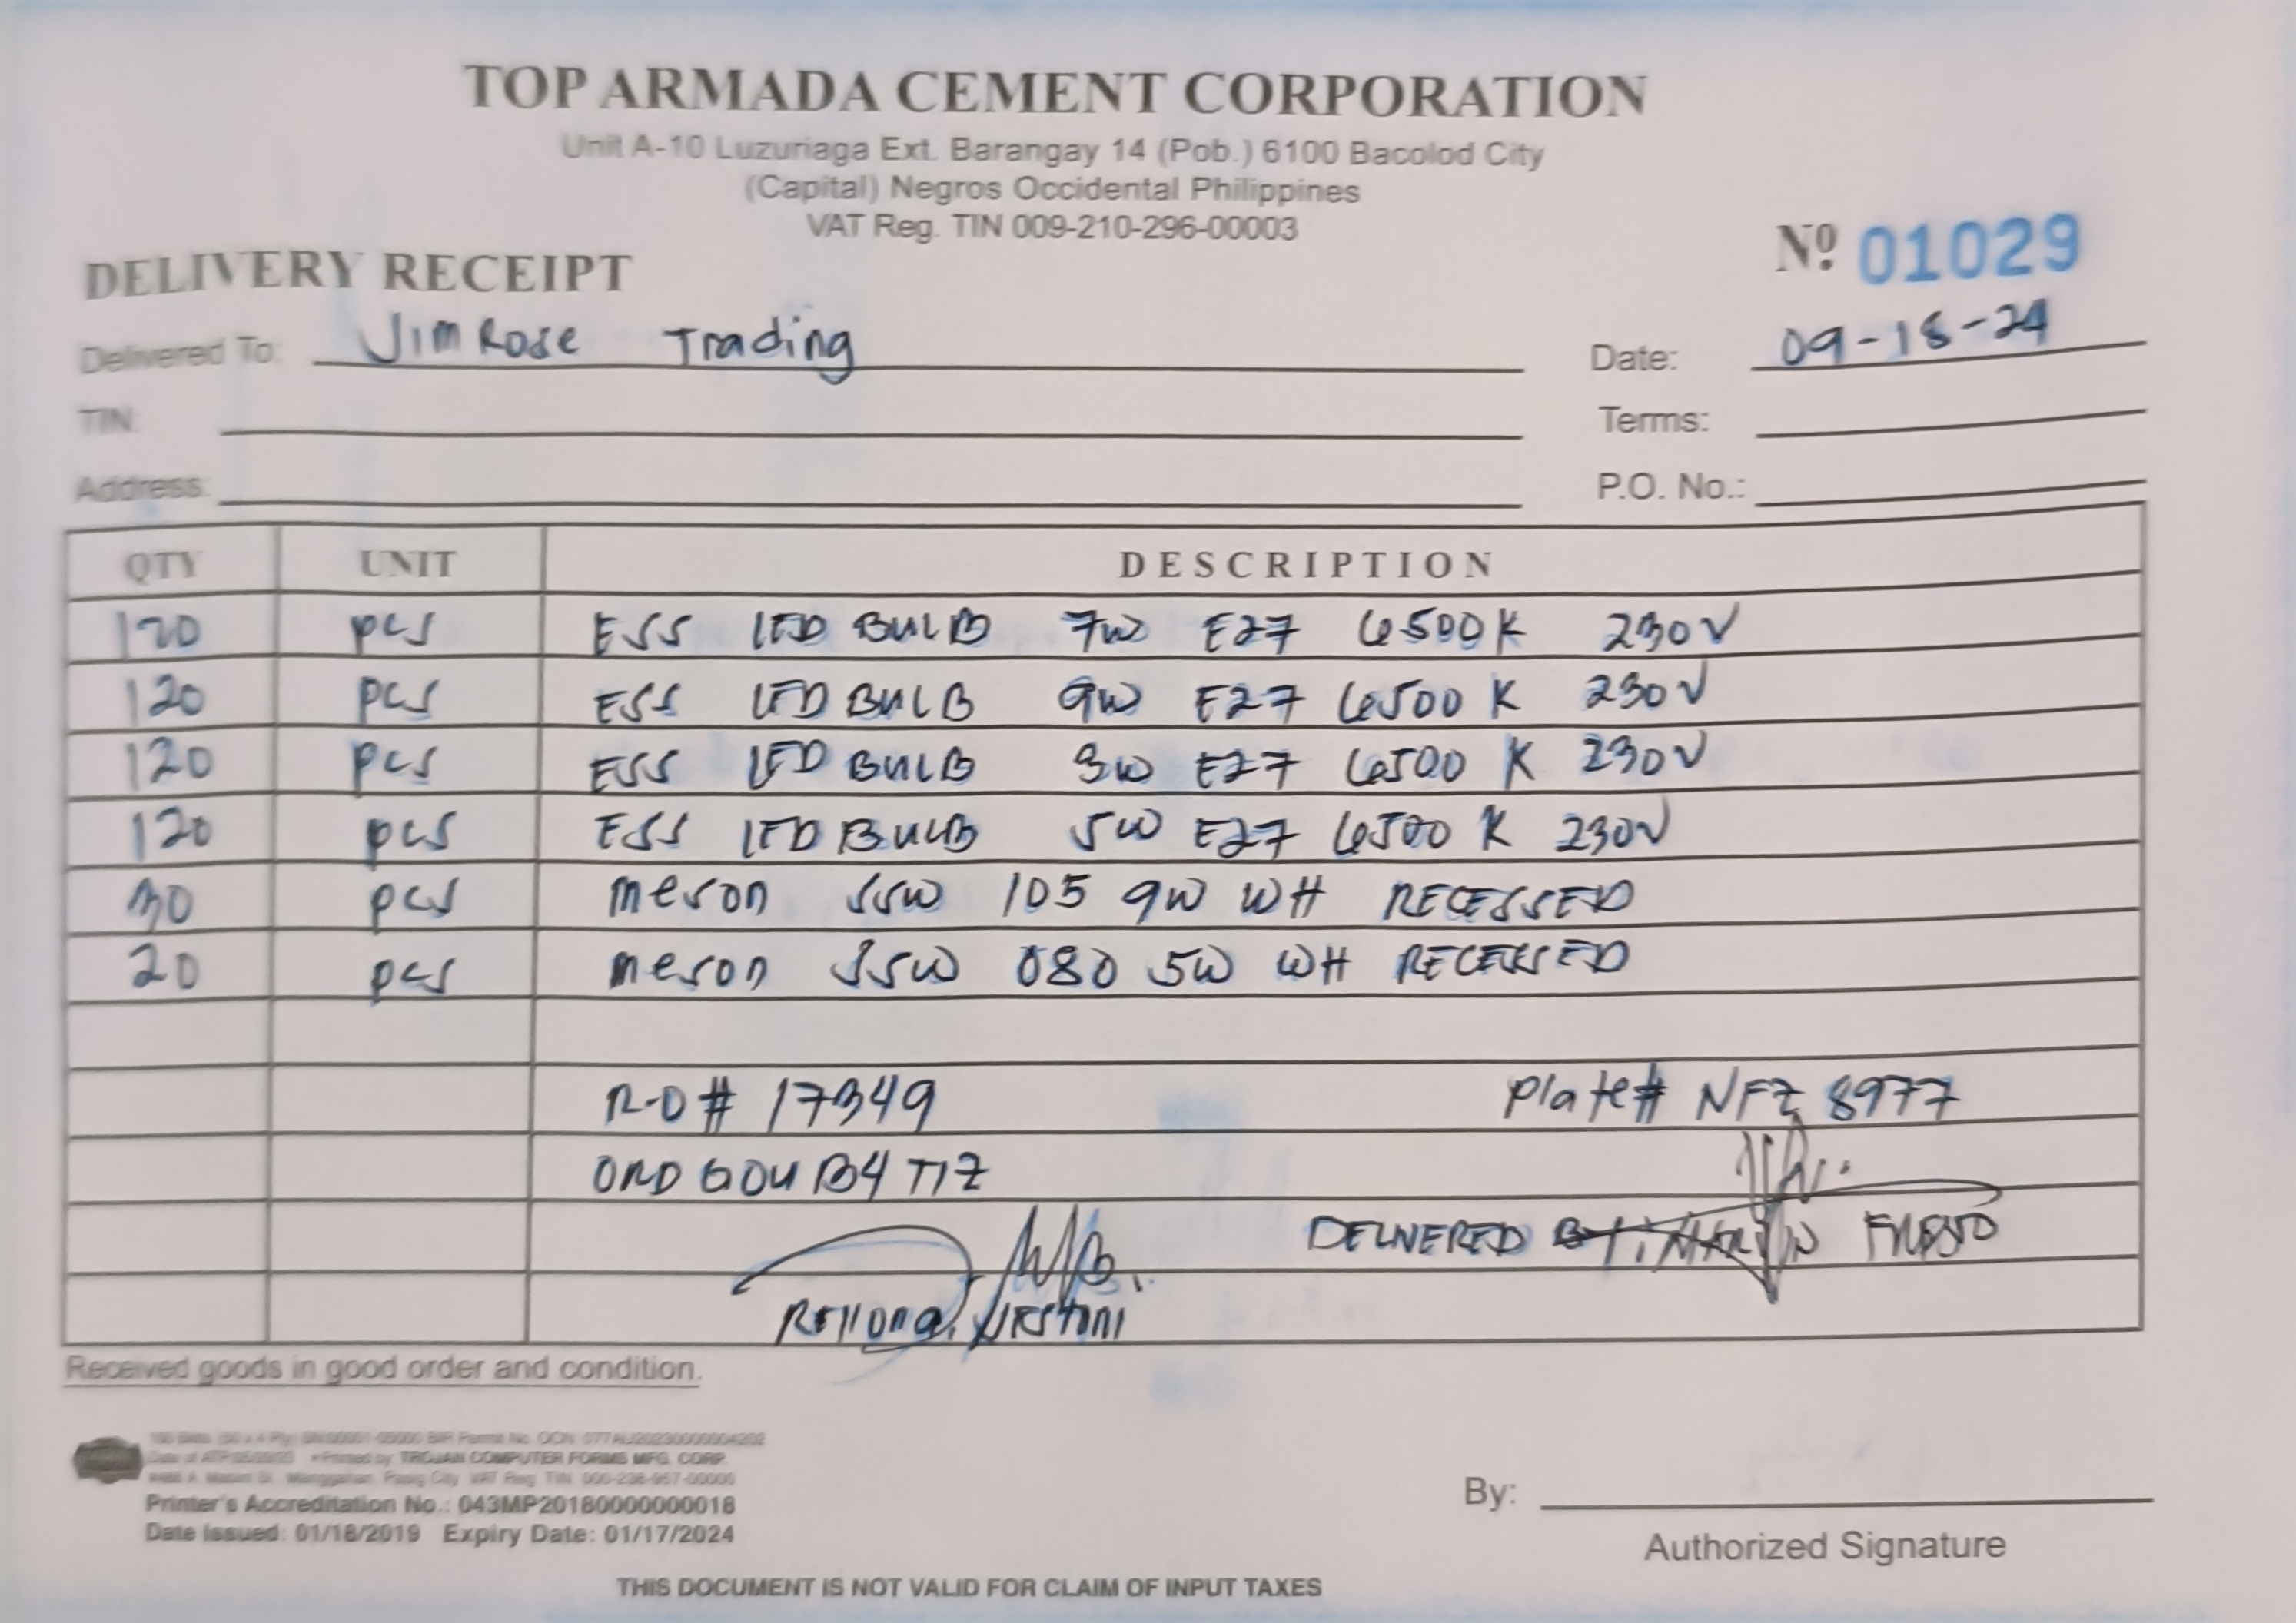 TOP ARMADA CEMENT CORPORATION
Unit A-10 Luzuriaga Ext. Barangay 14 (Pob.) 6100 Bacolod City
(Capital) Negros Occidental Philippines
VAT Reg. TIN 009-210-296-00003
Nº 01029
DELIVERY RECEIPT
Delivered To: Jim Rose Trading Date: 09-18-24
TIN: Terms:
Address: P.O. No.:
QTY UNIT DESCRIPTION
120 pcs ESS LED BULB 7W E27 6500K 230V
120 pcs ESS LED BULB 9W E27 6500 K 230V
120 pcs ESS LED BULB 3W E27 6500 K 230V
120 pcs ESS LED BULB 5W E27 6500 K 230V
30 pcs meson SSW 105 9W WH RECESSED
20 pcs meson SSW 080 5W WH RECESSED
R-O # 17349 Plate# NFZ 8977
ORD GOU B4 TIZ
DELIVERED BY:
Received goods in good order and condition.
100 Bklts. (50 x 4 Ply) SN:00001-05000 BIR Permit No. OCN:
Printed by TROJAN COMPUTER FORMS MFG. CORP.
Pasig City VAT Reg. TIN
Printer's Accreditation No.: 043MP20180000000018
Date issued: 01/18/2019 Expiry Date: 01/17/2024
By:
Authorized Signature
THIS DOCUMENT IS NOT VALID FOR CLAIM OF INPUT TAXES